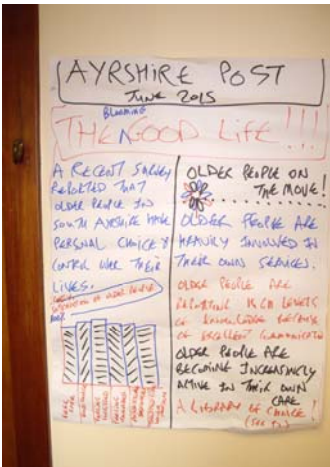 AYRSHIRE POST
JUNE 2015
BLOOMING
THE GOOD LIFE!!!
A RECENT SURVEY
REPORTED THAT
OLDER PEOPLE IN
SOUTH AYRSHIRE HAVE
PERSONAL CHOICE &
CONTROL OVER THEIR
LIVES.
OF OLDER PEOPLE
OLDER PEOPLE ON
THE MOVE!
OLDER PEOPLE ARE
HEAVILY INVOLVED IN
THEIR OWN SERVICES.
OLDER PEOPLE ARE
REPORTING HIGH LEVELS
OF KNOWLEDGE BECAUSE
OF EXCELLENT
OLDER PEOPLE ARE
BECOMING INCREASINGLY
ACTIVE IN THEIR OWN
CARE
A LIBRARY OF CHOICE!